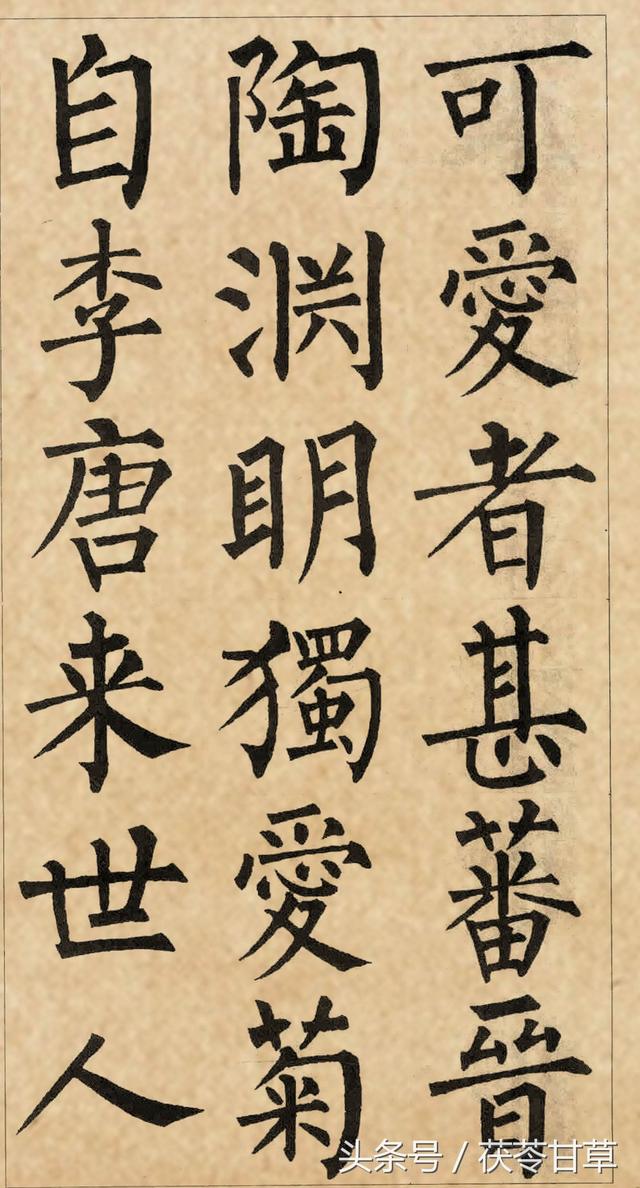 可愛者甚蕃晉
陶渊明獨愛菊
自李唐来世人
头条号 / 茯苓甘草